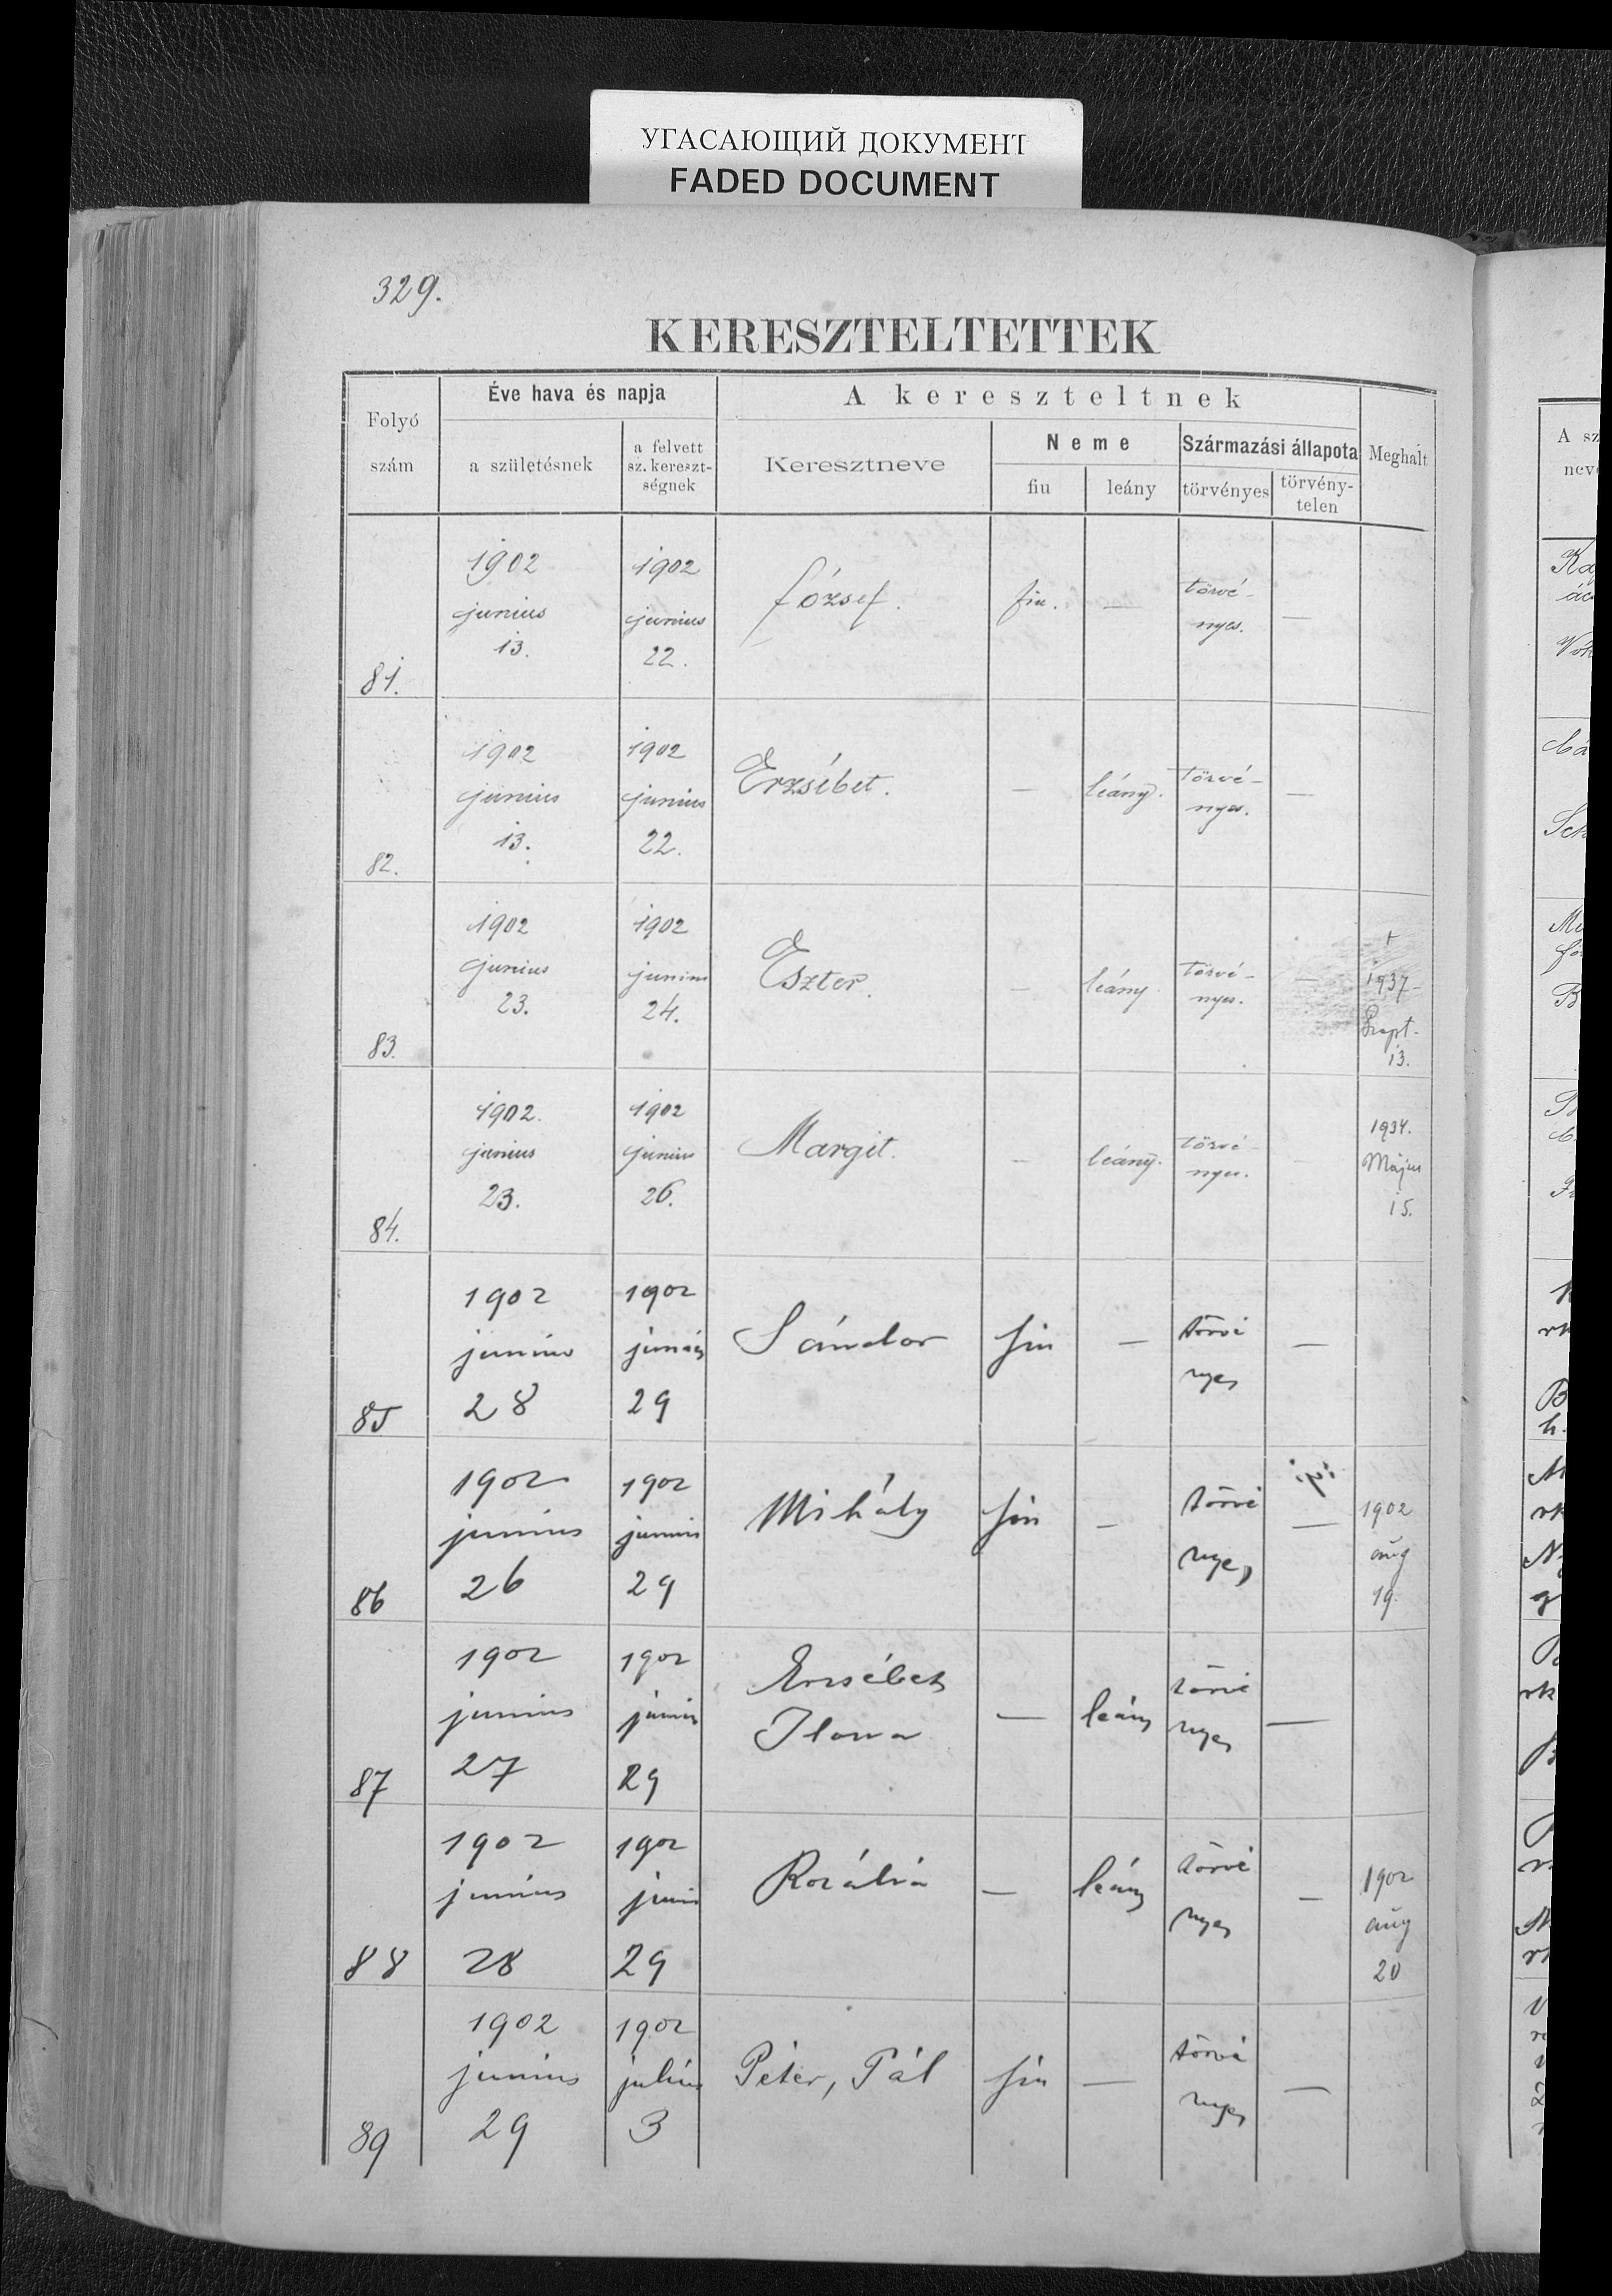 УГАСАЮЩИЙ ДОКУМЕНТ
FADED DOCUMENT
329.
KERESZTELTETTEK
Folyó
szám
Éve hava és napja
a születésnek
a felvett
sz. kereszt-
ségnek
A kereszteltnek
Keresztneve
Neme
fiu
leány
Származási állapota
törvényes
törvény-
telen
Meghalt
81.
1902
junius
13.
1902
junius
22.
József.
fiu.
—
törvé-
nyes.
—
82.
1902
junius
13.
1902
junius
22.
Erzsébet.
—
leány.
törvé-
nyes.
—
83.
1902
junius
23.
1902
junius
24.
Eszter.
—
leány
törvé-
nyes.
—
†
1937
Szept.
13.
84.
1902.
junius
23.
1902
junius
26.
Margit.
—
leány.
törvé-
nyes.
—
1934.
Május
15.
85
1902
junius
28
1902
junius
29
Sándor
fiu
—
törvé
nyes
—
86
1902
junius
26
1902
junius
29
Mihály
fiu
—
törvé
nyes
—
1902
aug
19.
87
1902
junius
27
1902
junius
29
Erzsébet
Ilona
—
leány
törvé
nyes
—
88
1902
junius
28
1902
juni
29
Rozália
—
leány
törvé
nyes
—
1902
aug
20
89
1902
junius
29
1902
julius
3
Péter, Pál
fiu
—
törvé
nyes
—
A sz
nev